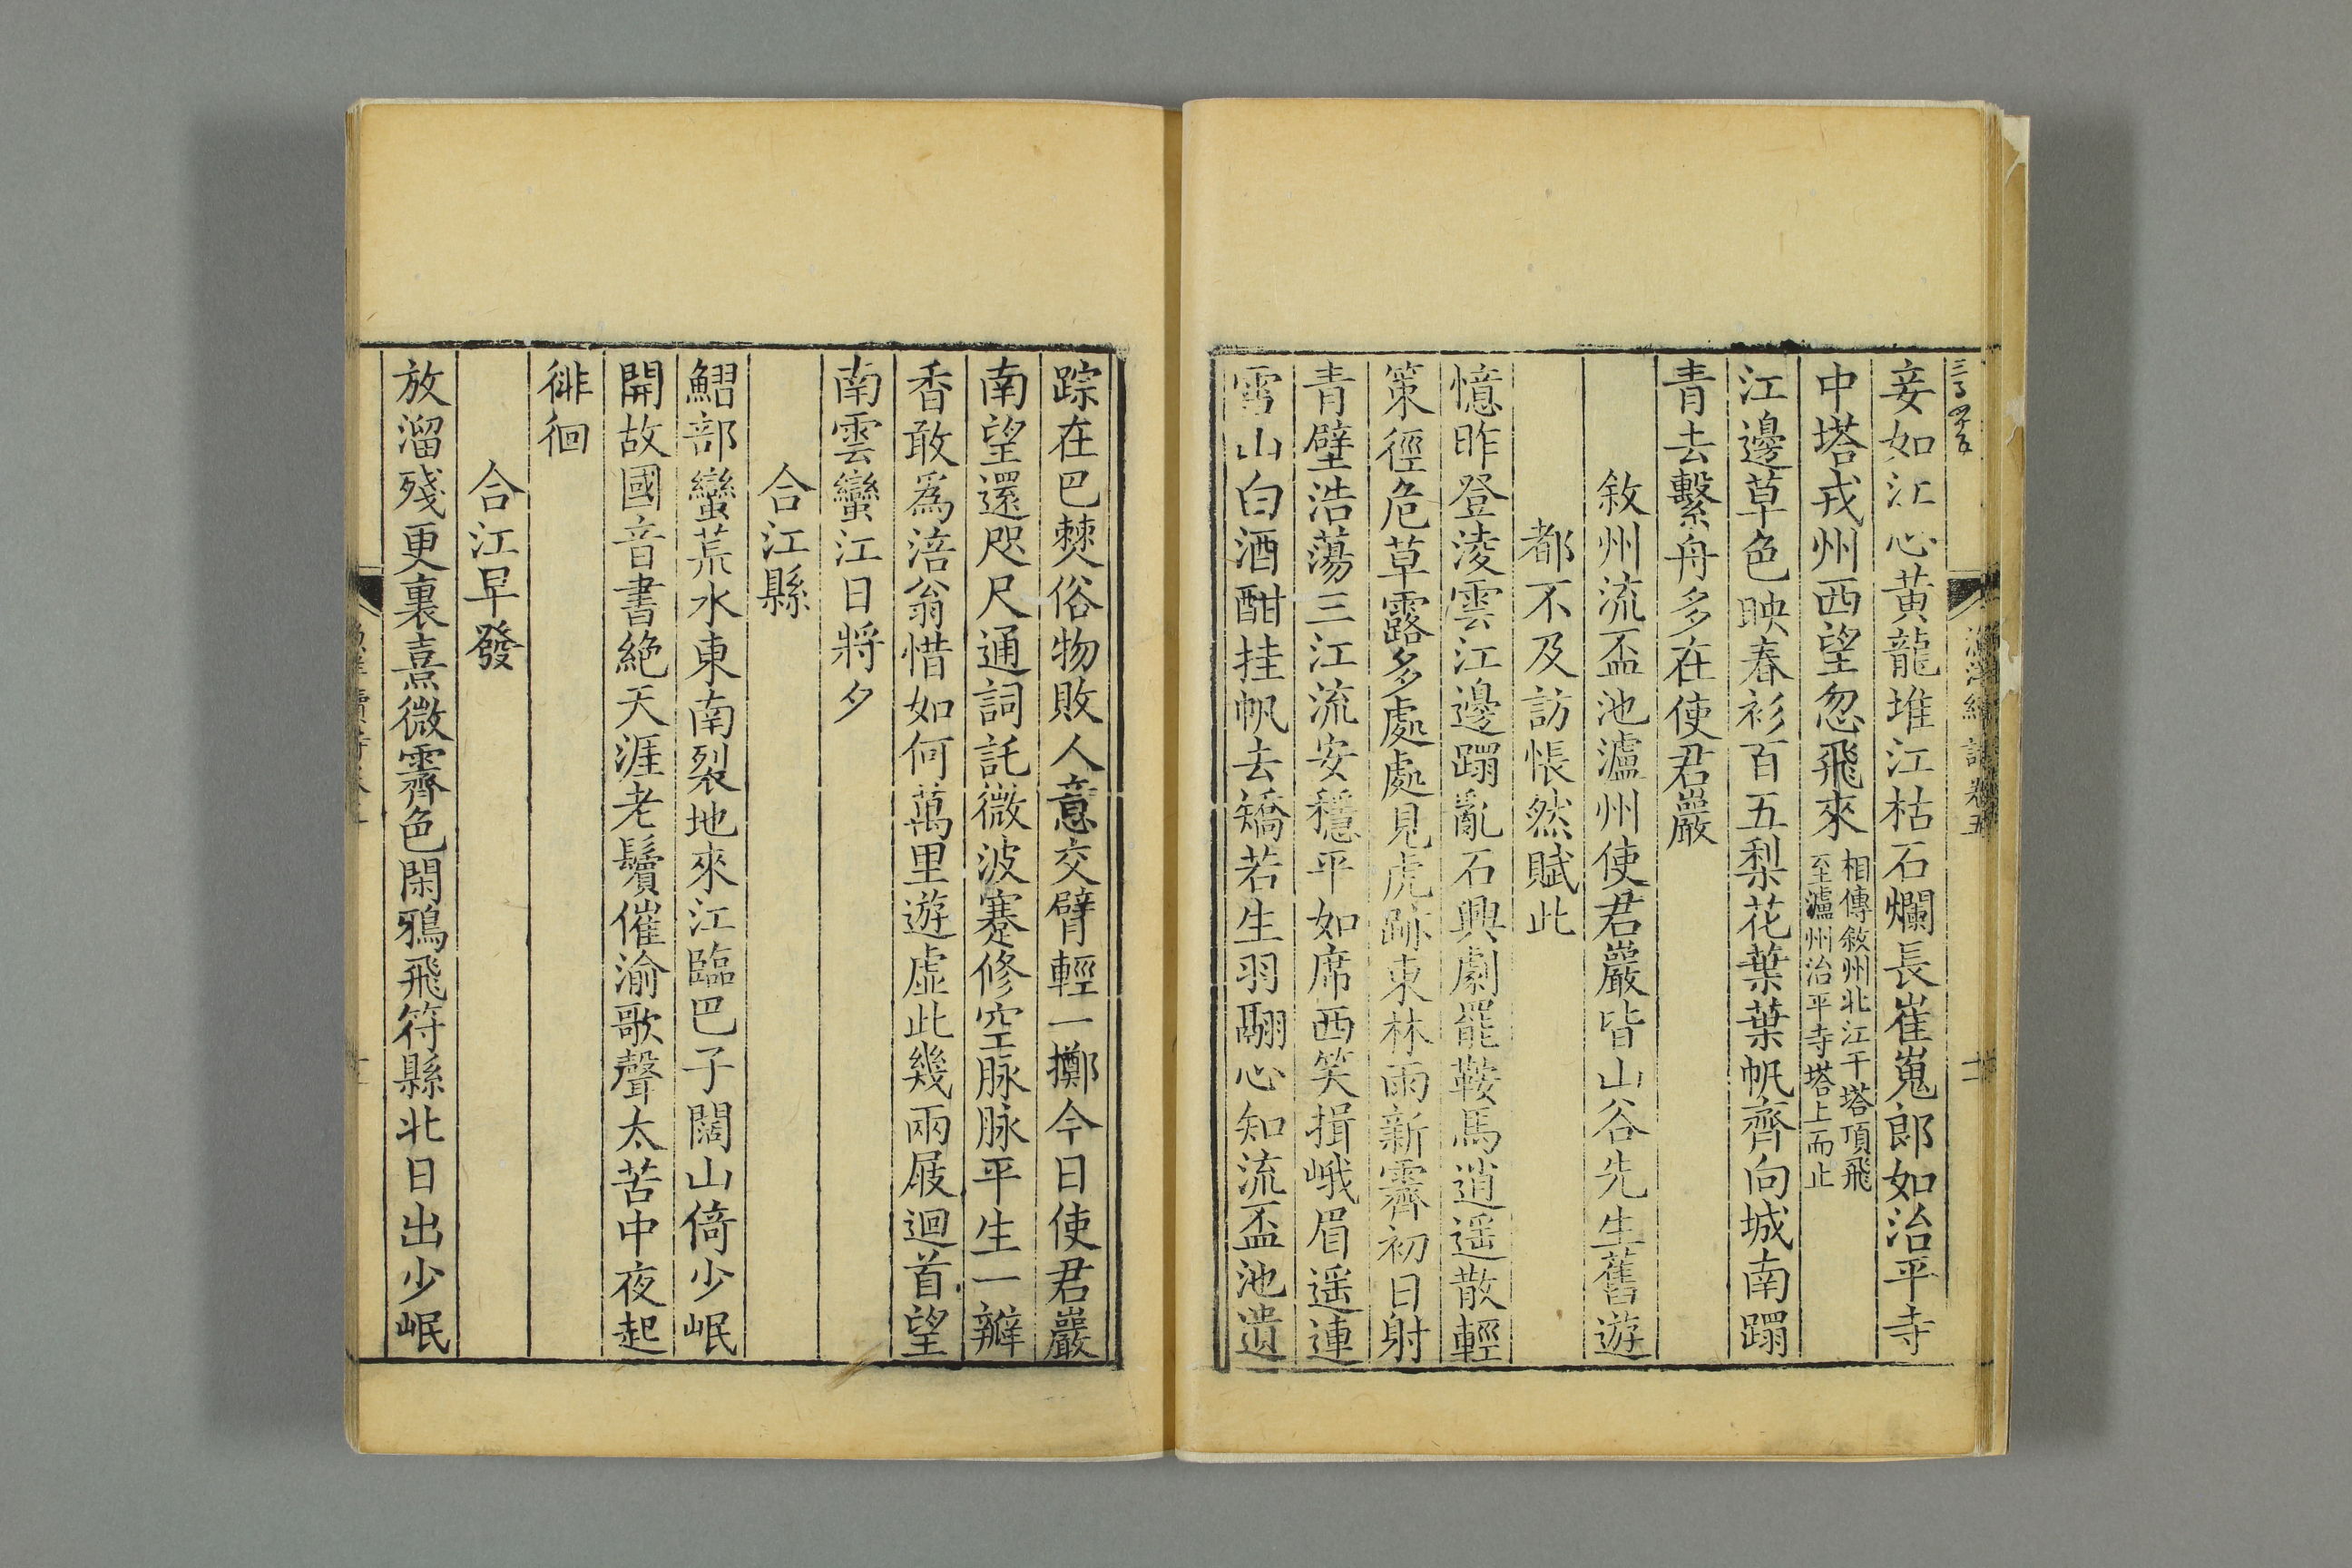 妾如江心黃龍堆江枯石爛長崔嵬郎如治平寺
中塔戎州西望忽飛來相傳敘州北江干塔頂飛
至瀘州治平寺塔上而止
江邊草色映春衫百五梨花葉葉帆齊向城南蹋
青去繫舟多在使君巖
敘州流盃池瀘州使君巖皆山谷先生舊遊
都不及訪悵然賦此
憶昨登淩雲江邊蹋亂石興劇罷鞍馬逍遥散輕
策徑危草露多處處見虎跡東林雨新霽初日射
青壁浩蕩三江流安穩平如席西笑揖峨眉遥連
雪山白酒酣挂帆去矯若生羽翮心知流盃池遺
踪在巴僰俗物敗人意交臂輕一擲今日使君巖
南望還咫尺通詞託微波蹇修空脉脉平生一瓣
香敢爲涪翁惜如何萬里遊虛此幾兩屐迴首望
南雲蠻江日將夕
合江縣
鰼部蠻荒水東南裂地來江臨巴子闊山倚少岷
開故國音書絶天涯老鬢催渝歌聲太苦中夜起
徘徊
合江早發
放溜殘更裏熹微霽色閑鴉飛符縣北日出少岷